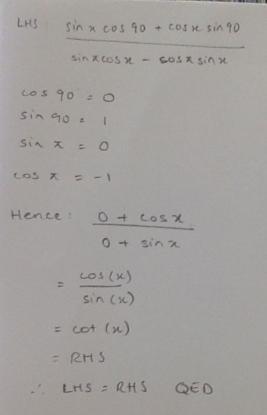 LHS: sin x cos 90 + cos x sin 90
sin π cos x - cos π sin x
cos 90 = 0
sin 90 = 1
sin π = 0
cos π = -1
Hence: 0 + cos x
0 + sin x
= cos (x)
sin (x)
= cot (x)
= RHS
∴ LHS = RHS QED